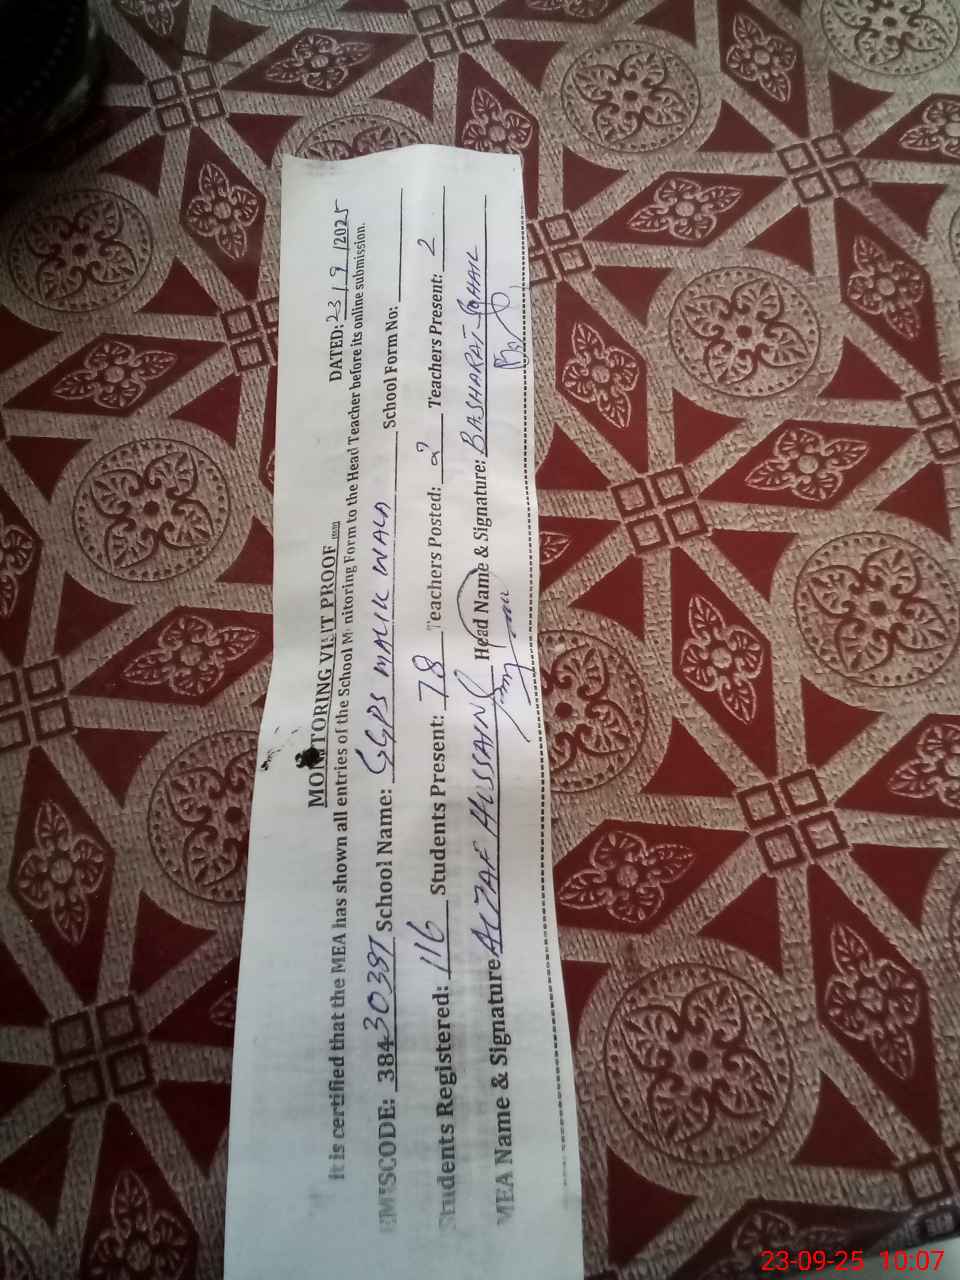 MONITORING VISIT PROOF
DATED: 23/9/2025
It is certified that the MEA has shown all entries of the School Monitoring Form to the Head Teacher before its online submission.
EMISCODE: 38430397 School Name: GGPS MALIK WALA School Form No:
Students Registered: 116 Students Present: 78 Teachers Posted: 2 Teachers Present: 2
MEA Name & Signature ALTAF HUSSAIN Head Name & Signature: BASHARAT SOHAIL
23-09-25 10:07